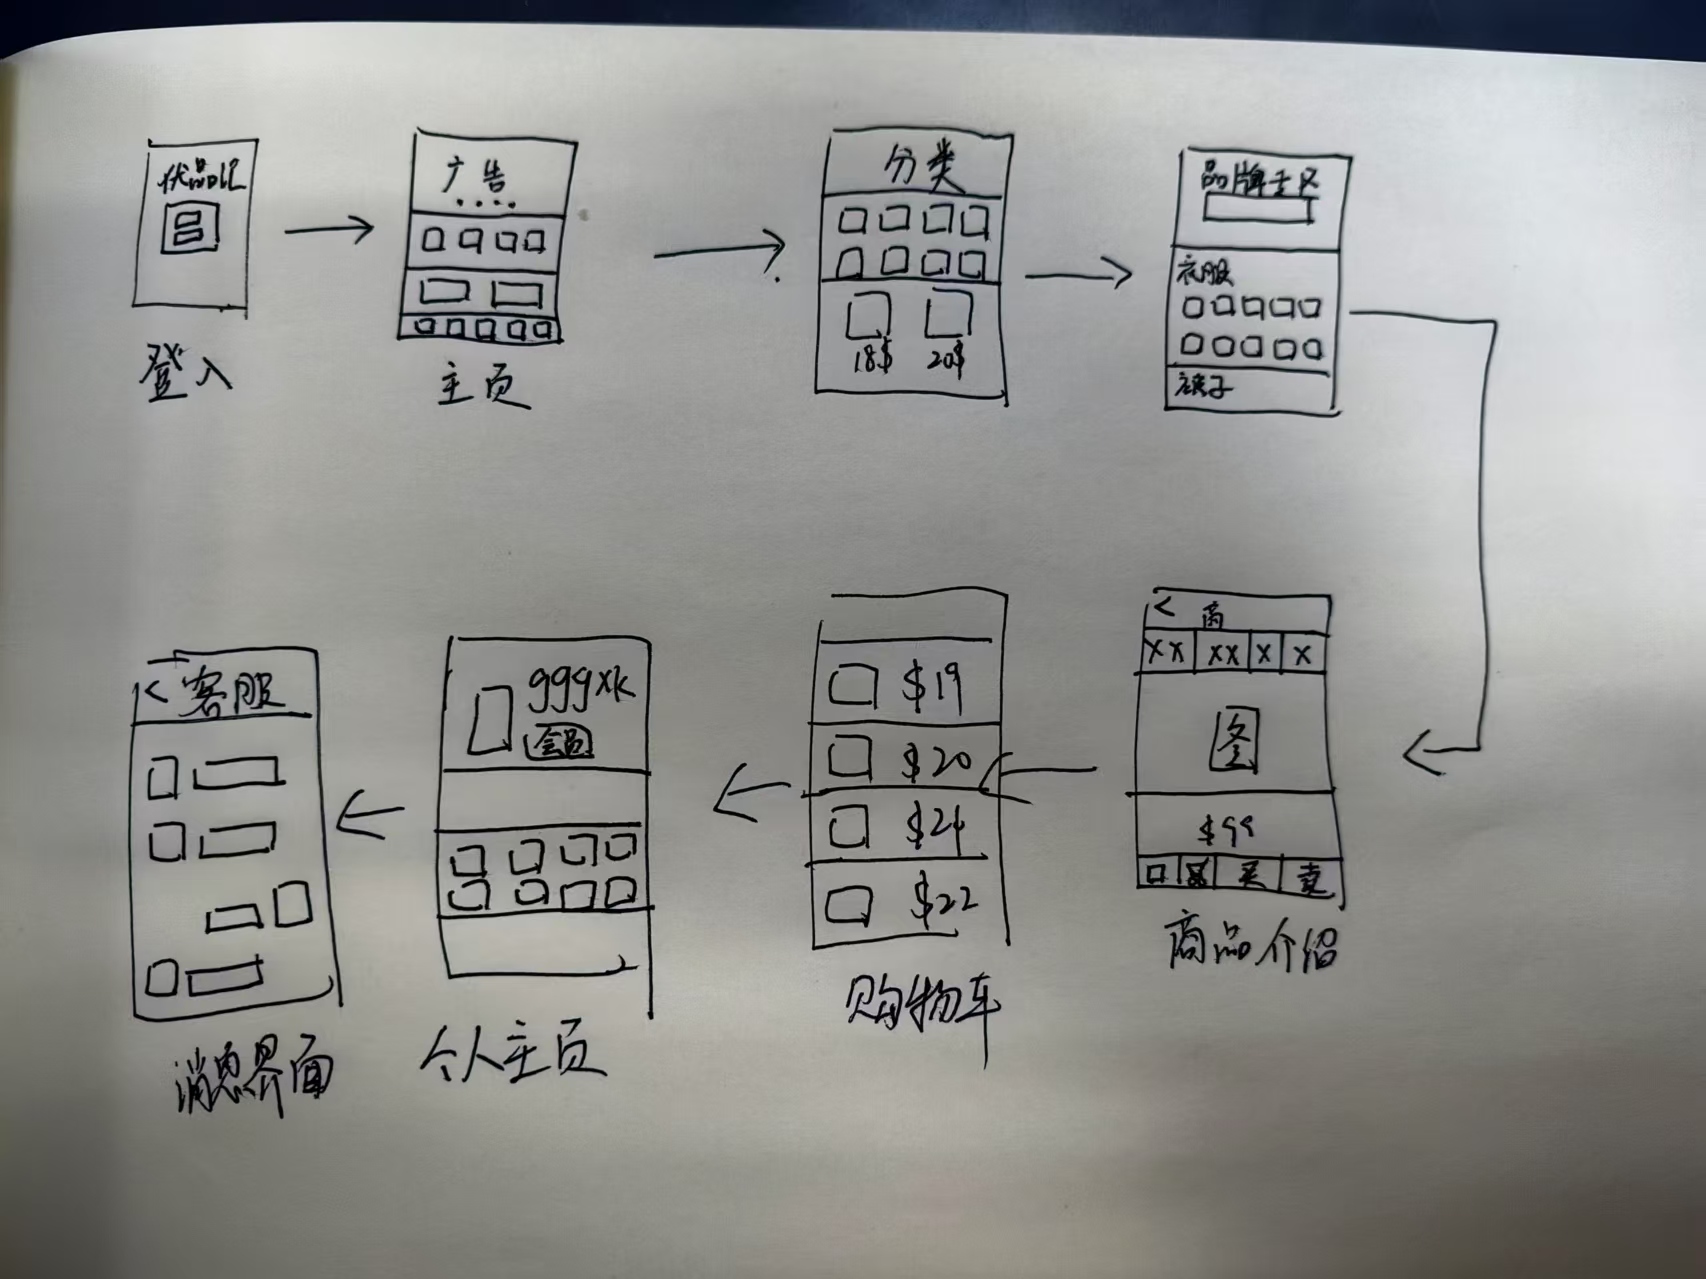 优品汇
登入
广告
主页
分类
18$ 20$
品牌专区
衣服
裤子
< 商
xx xx x x
图
$99
买 卖
商品介绍
$19
$20
$24
$22
购物车
999xk
会员
个人主页
< 客服
消息界面